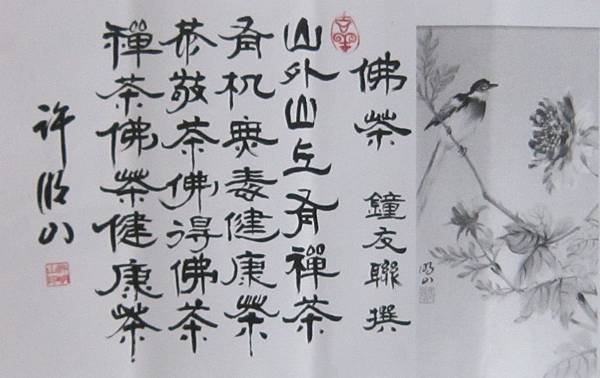 佛茶 鐘友聯 撰
山外山上有禪茶
有机無毒健康茶
恭敬茶佛得佛茶
禪茶佛茶健康茶
許明山
明山